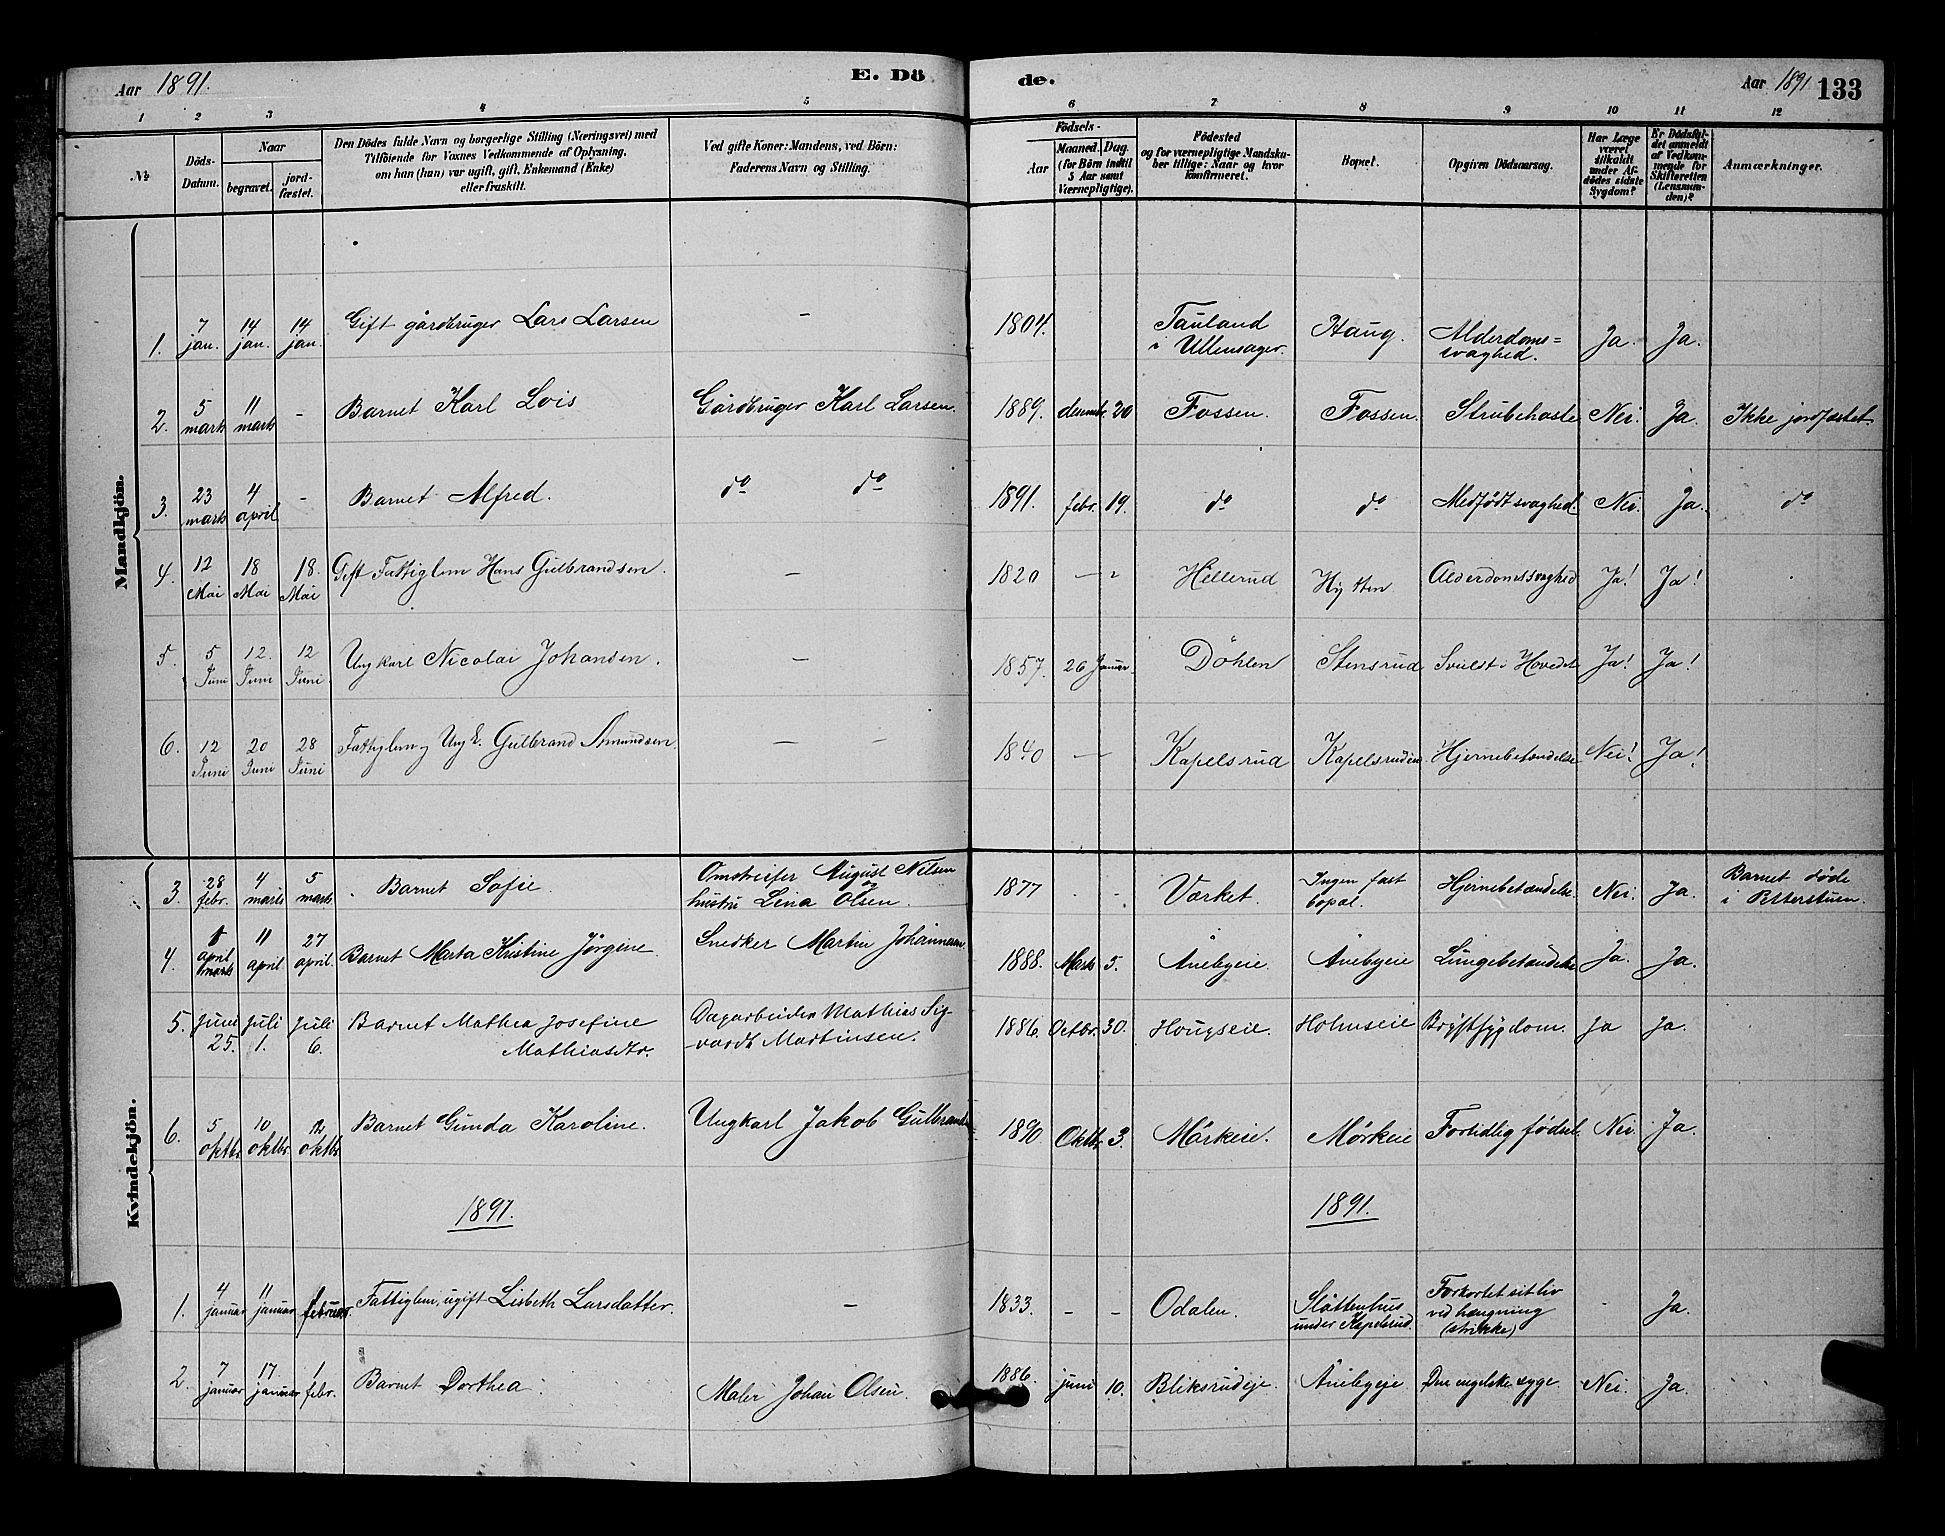 Aar 1891.
E. Dö
de.
Aar 1891
133
1 2 3 4 5 6 7 8 9 10 11 12
No
Döds-
Datum.
Naar
begravet.
jord-
fæstet.
Den Dödes fulde Navn og borgerlige Stilling (Næringsvei) med
Tilföiende for Voxnes Vedkommende af Oplysning,
om han (hun) var ugift, gift, Enkemand (Enke)
eller fraskilt.
Ved gifte Koner: Mandens, ved Börn:
Faderens Navn og Stilling.
Födsels-
Aar
Maaned. Dag.
(for Börn indtil
5 Aar samt
Værnepligtige).
Födested
og for værnepligtige Mandska-
ber tillige: Naar og hvor
konfirmeret.
Bopæl.
Opgiven Dödsaarsag.
Har Læge
været
tilkaldt
under Af-
dödes sidste
Sygdom?
Er Dödsfal-
det anmeldt
af Vedkom-
mende for
Skifteretten
(Lensman-
den)?
Anmærkninger.
Mandkjön.
1. 7 jan. 14 jan. 14 jan. Gift gårdbruger Lars Larsen – 1804. Tauland i Ullensager. Haug. Alderdoms= svaghed. Ja. Ja.
2. 5 marts 11 marts - Barnet Karl Lois Gårdbruger Karl Larsen. 1889. 20 Fossen. Fossen. Strubehoste Nei. Ja. Ikke jordfæstet.
3. 23 marts 4 april - Barnet Alfred. do do 1891. febr. 19. do do Medfödt svaghed. Nei. Ja. do
4. 12 Mai 18 Mai 18. Mai Gift Fattiglem Hans Gulbrandsen. – 1820 — " Hellerud Hytten Alderdomssvaghed Ja! Ja!
5. 5 Juni 12. Juni 12 Juni Ungkarl Nicolai Johansen. – 1857. 26 Januar Döhlen Stensrud Svulst i Hovedet Ja! Ja!
6. 12 Juni 20 Juni 28 Juni Fattiglem og Ungk. Gulbrand Amundsen. — – 1840 — Kapelsrud Kapelsrudeie Hjernebetændelse Nei! Ja!
Kvindekjön.
3. 28 febr. 4 marts 5 marts Barnet Sofie. Omstreifer August Nilsen og hustru Lina Olsen. 1877 - - Værket. Ingen fast bopæl. Hjernebetændelse. Nei. Ja. Barnet døde i Petterstuen.
4. april marts 11 april 27 april. Barnet Marta Kristine Jörgine. Snedker Martin Johannesen. 1888. Marts 5. Ånebyeie. Ånebyeie Lungebetændelse Ja. Ja.
5. Juni 25. Juli 1. Juli 6. Barnet Mathea Josefine Mathiasdtr. Dagarbeider Mathias Sig- vardt Martinsen. 1886. Octbr. 30. Hougseie. Holmseie Brystsygdom. Ja Ja.
6. 5 oktbr. 10 oktbr. 12 oktbr Barnet Gunda Karoline. Ungkarl Jakob Gulbrands. 1890 Oktbr. 3. Mörkeie. Mörkeie Fortidlig födsel. Nei. Ja.
1891.
1891.
1. 4 januar 11 januar februar. Fattiglem, ugift Lisbeth Larsdatter. – 1833. - - Odalen. Slåttenhus under Kapelsrud. Forkortet sit liv ved hængning (strikke) - Ja.
2. 7 januar 17 januar 1 febr. Barnet Dorthea. Maler Johan Olsen. 1886. juni 10. Bliksrudeje. Ånebyeje Den engelske syge. Nei. Ja.